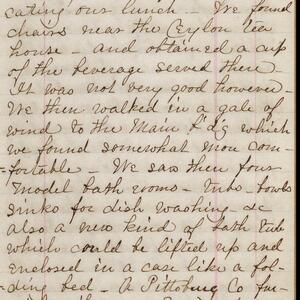 cating our lunch - We found
chairs near the Ceylon tea
house - and obtained a cup
of the beverage served there
It was not very good however -
We then walked in a gale of
wind to the Main b'd'g which
we found somewhat more com-
fortable - We saw then four
model bath rooms - tubs - bowls
sinks for dish washing - &c
also a new kind of bath tub
which could be lifted up and
enclosed in a case like a fol-
ding bed - A Pittsburg Co fur-